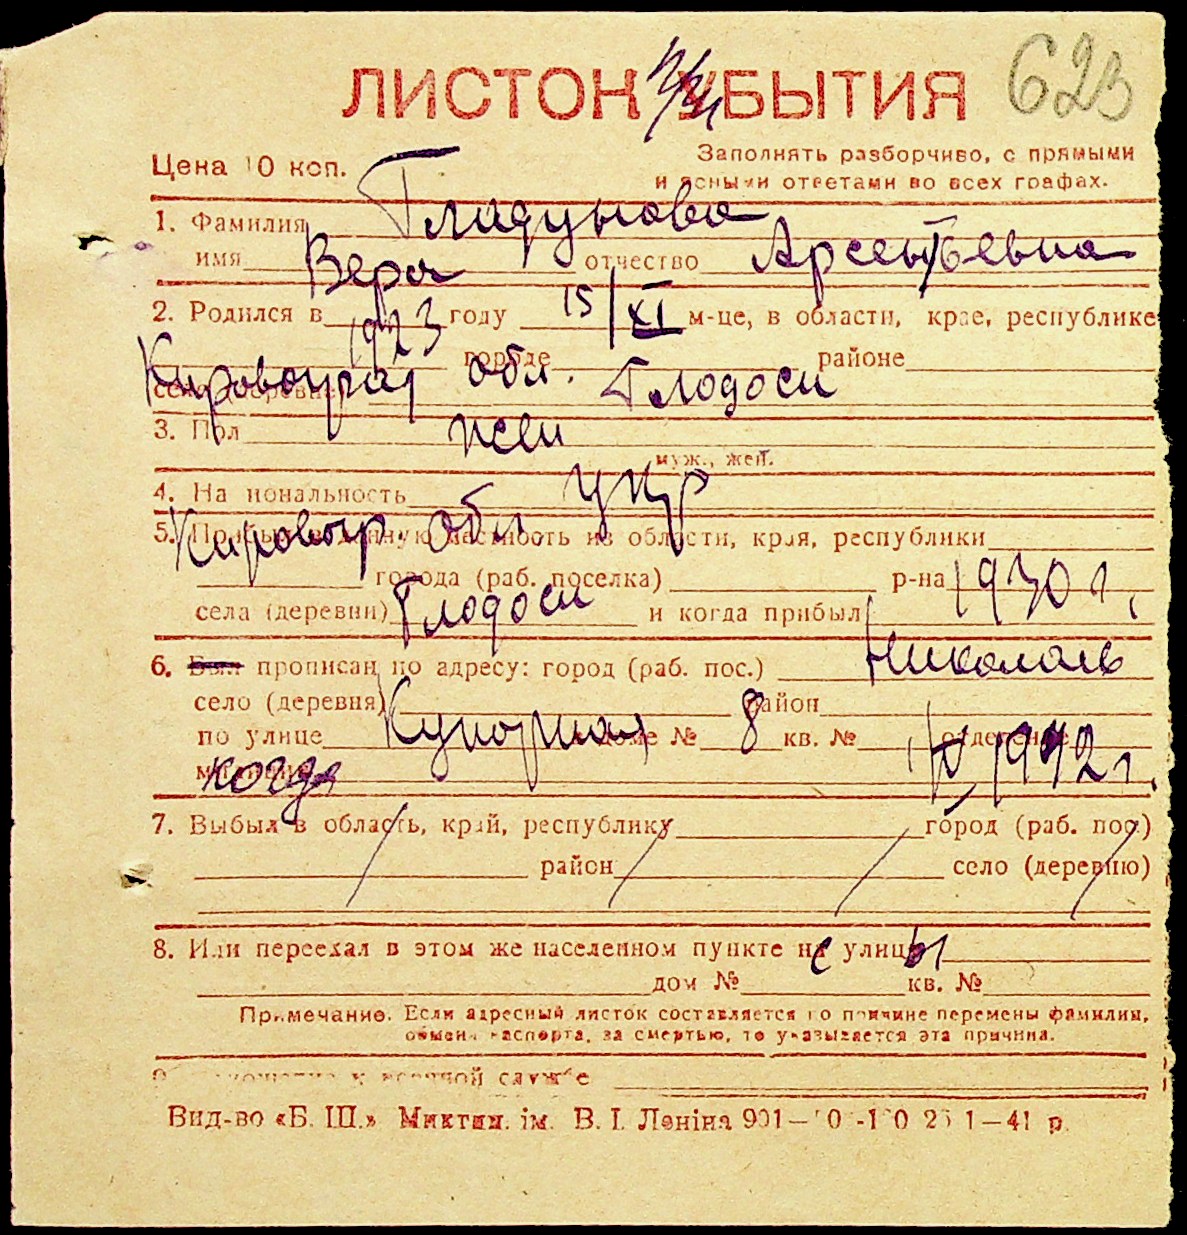 ЛИСТОК УБЫТИЯ 623
Цена 10 коп.
Заполнять разборчиво, с прямыми
и ясными ответами во всех графах.
1. Фамилия Гладунова
имя Вера отчество Арсентьевна
2. Родился в 1923 году 15/XI м-це, в области, крае, республике
городе районе
Кировоград обл. Глодоси
селе (деревне)
3. Пол жен
муж., жен.
4. Национальность укр
5. Прибыл в данную местность из области, края, республики
Кировогр. обл.
города (раб. поселка) р-на
села (деревни) Глодоси и когда прибыл 1930 г.
6. Был прописан по адресу: город (раб. пос.) Николаев
село (деревня) район
по улице Купорная доме № 8 кв. № отделение
милиции когда 1942 г.
7. Выбыл в область, край, республику город (раб. пос.)
район село (деревню)
8. Или переехал в этом же населенном пункте не улицы
дом № кв. №
Примечание. Если адресный листок составляется по причине перемены фамилии,
обмена паспорта, за смертью, то указывается эта причина.
9. отношение к военной службе
Вид-во «Б. Ш.» Миктип. ім. В. І. Леніна 901— 41 р.